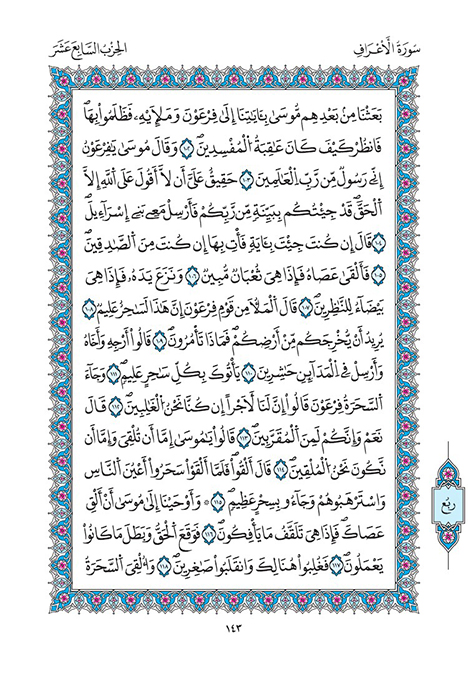 سُورَةُ الْأَعْرَافِ
الحِزْبُ السَّابِعَ عَشَرَ
بَعَثْنَا مِنۢ بَعْدِهِم مُّوسَىٰ بِـَٔايَٰتِنَا إِلَىٰ فِرْعَوْنَ وَمَلَإِيْهِۦ فَظَلَمُواْ بِهَاۖ
فَانظُرْ كَيْفَ كَانَ عَٰقِبَةُ الْمُفْسِدِينَۖ ١٠٢ وَقَالَ مُوسَىٰ يَٰفِرْعَوْنُ
إِنِّي رَسُولٌ مِّن رَّبِّ الْعَٰلَمِينَۖ ١٠٣ حَقِيقٌ عَلَيَّ أَن لَّا أَقُولَ عَلَى اللَّهِ إِلَّا
الْحَقَّۖ قَدْ جِئْتُكُم بِبَيِّنَةٍ مِّن رَّبِّكُمْ فَأَرْسِلْ مَعِي بَنِي إِسْرَآءِيلَۖ
١٠٤ قَالَ إِن كُنتَ جِئْتَ بِـَٔايَةٍ فَأْتِ بِهَا إِن كُنتَ مِنَ الصَّٰدِقِينَۖ
١٠٥ فَأَلْقَىٰ عَصَاهُ فَإِذَا هِيَ ثُعْبَانٌ مُّبِينٌۖ ١٠٦ وَنَزَعَ يَدَهُۥ فَإِذَا هِيَ
بَيْضَآءُ لِلنَّٰظِرِينَۖ ١٠٧ قَالَ الْمَلَأُ مِن قَوْمِ فِرْعَوْنَ إِنَّ هَٰذَا لَسَٰحِرٌ عَلِيمٌۖ ١٠٨
يُرِيدُ أَن يُّخْرِجَكُم مِّنْ أَرْضِكُمْۖ فَمَاذَا تَأْمُرُونَۖ ١٠٩ قَالُواْ أَرْجِهِ وَأَخَاهُ
وَأَرْسِلْ فِي الْمَدَآئِنِ حَٰشِرِينَ ١١٠ يَأْتُوكَ بِكُلِّ سَٰحِرٍ عَلِيمٍۖ ١١١ وَجَآءَ
السَّحَرَةُ فِرْعَوْنَ قَالُواْ إِنَّ لَنَا لَأَجْراً إِن كُنَّا نَحْنُ الْغَٰلِبِينَۖ ١١٢ قَالَ
نَعَمْ وَإِنَّكُمْ لَمِنَ الْمُقَرَّبِينَۖ ١١٣ قَالُواْ يَٰمُوسَىٰ إِمَّا أَن تُلْقِيَ وَإِمَّا أَن
نَّكُونَ نَحْنُ الْمُلْقِينَۖ ١١٤ قَالَ أَلْقُواْۖ فَلَمَّا أَلْقَوْاْ سَحَرُواْ أَعْيُنَ النَّاسِ
وَاسْتَرْهَبُوهُمْ وَجَآءُو بِسِحْرٍ عَظِيمٍۖ ١١٥ ۞ وَأَوْحَيْنَا إِلَىٰ مُوسَىٰ أَنْ أَلْقِ
عَصَاكَۖ فَإِذَا هِيَ تَلَقَّفُ مَا يَأْفِكُونَۖ ١١٦ فَوَقَعَ الْحَقُّ وَبَطَلَ مَا كَانُواْ
يَعْمَلُونَۖ ١١٧ فَغُلِبُواْ هُنَالِكَ وَانقَلَبُواْ صَٰغِرِينَۖ ١١٨ وَأُلْقِيَ السَّحَرَةُ
ربع
١٤٣